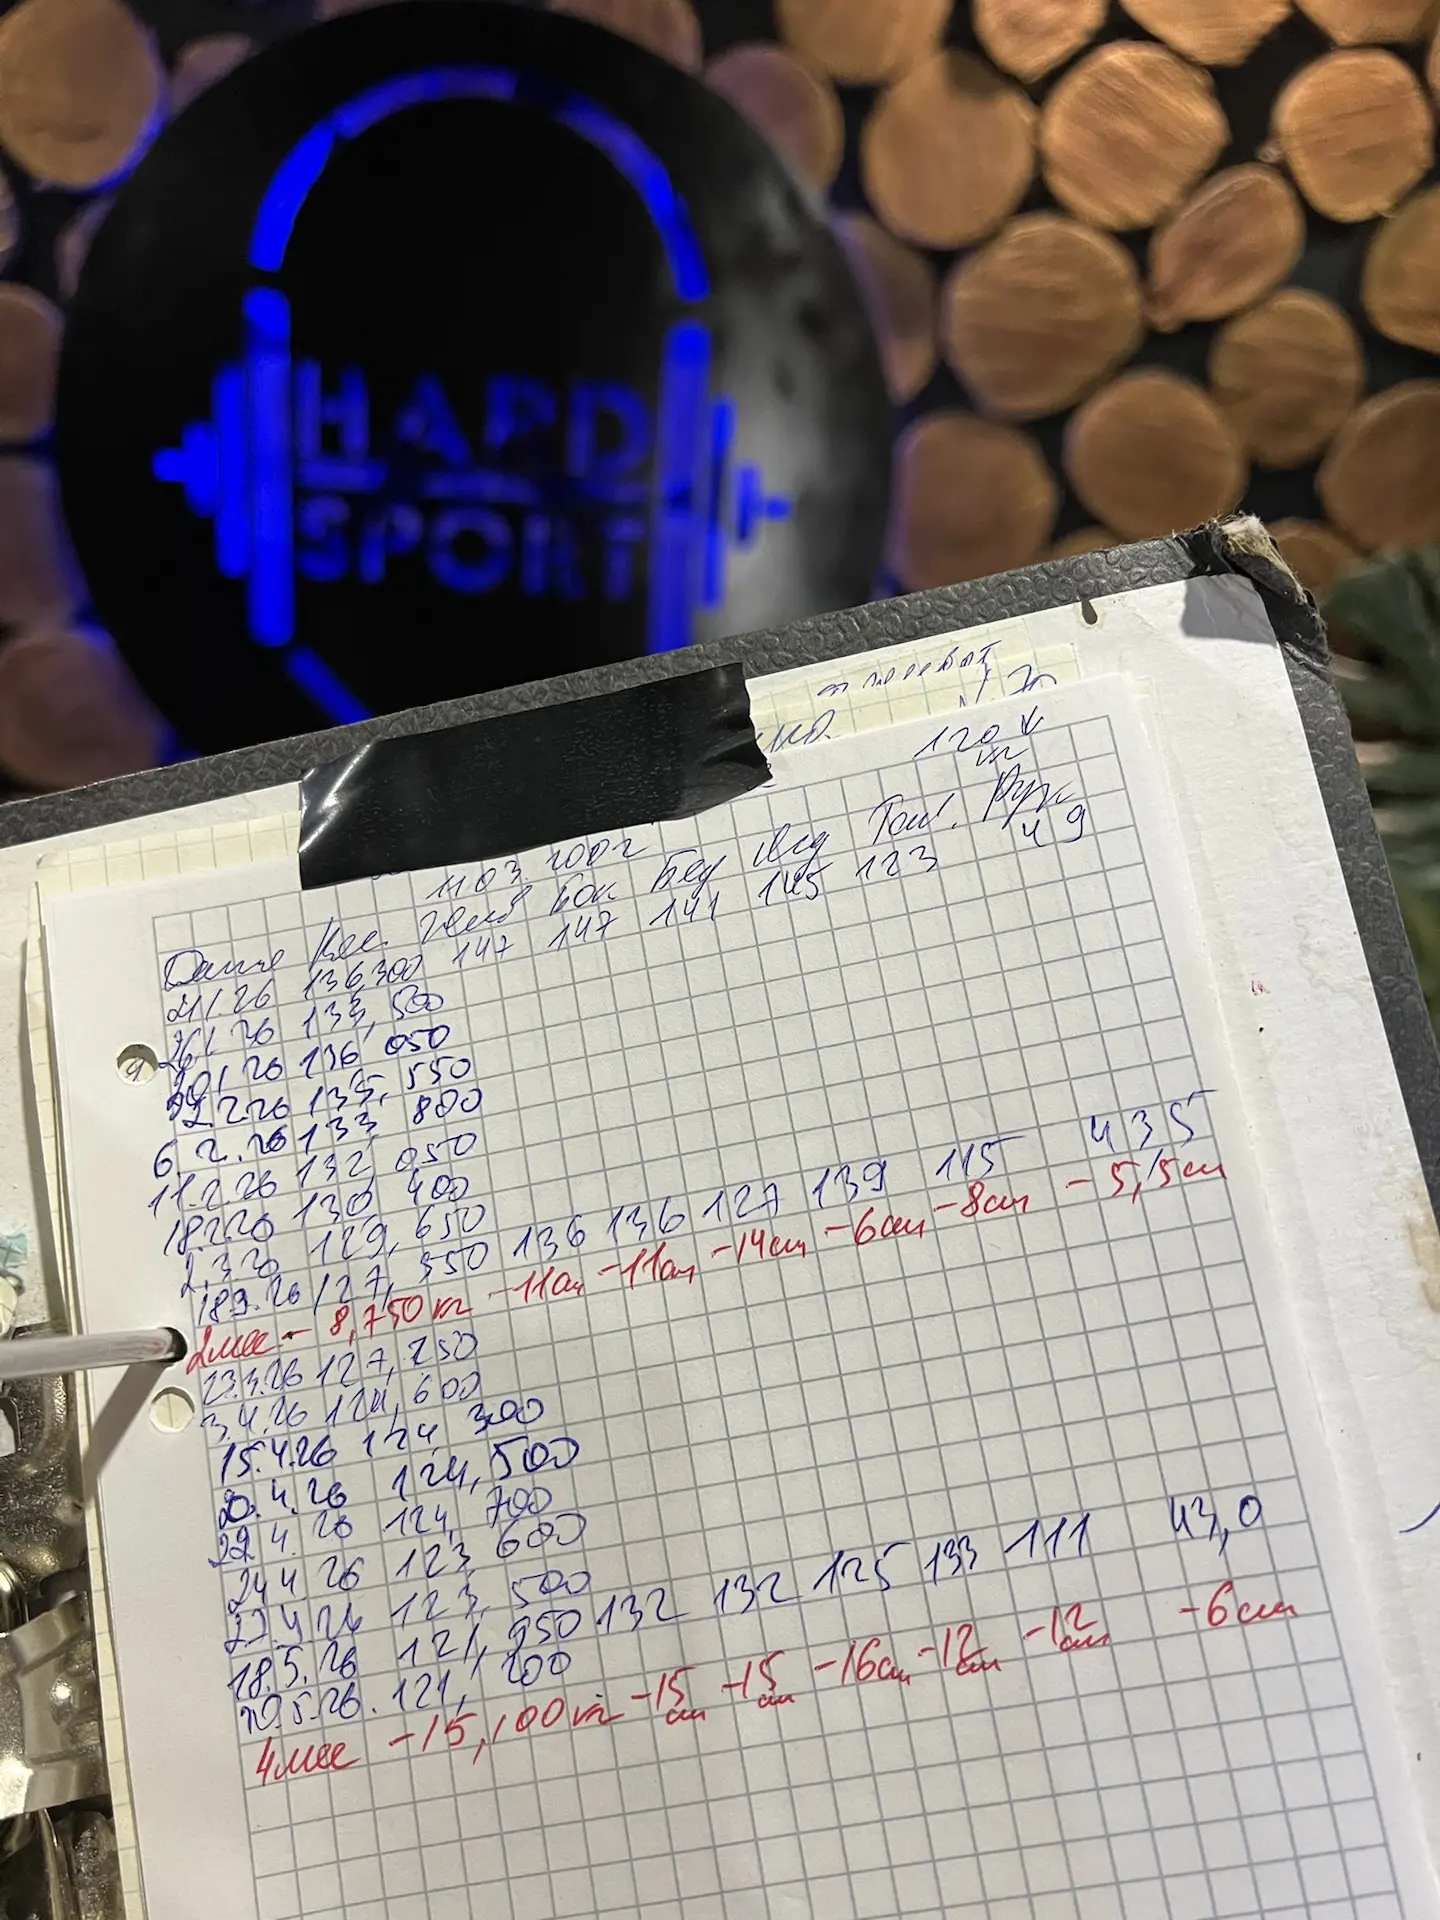 HARD
SPORT
120 кг
11 03. 2002
Дата Кг. Жив Бок Бед Яг Тал. Рук
21.1.26 136,300 147 147 141 145 123 49
26.1.26 133,500
136,050
2.2.26 135,550
6.2.26 133,800
11.2.26 132,050
18.2.26 130,400
2.3.26 129,650
18.3.26 127,550 136 136 127 139 115 43 5
2 мес - 8,750 кг -11см -11см -14см -6см -8см -5,5см
23.3.26 127,250
3.4.26 124,600
15.4.26 124,300
20.4.26 124,500
22.4.26 124,700
24.4.26 123,600
27.4.26 123,500
18.5.26 121,950 132 132 125 133 111 43,0
20.5.26. 121,200
4 мес -15,100 кг -15см -15см -16см -12см -12см -6см